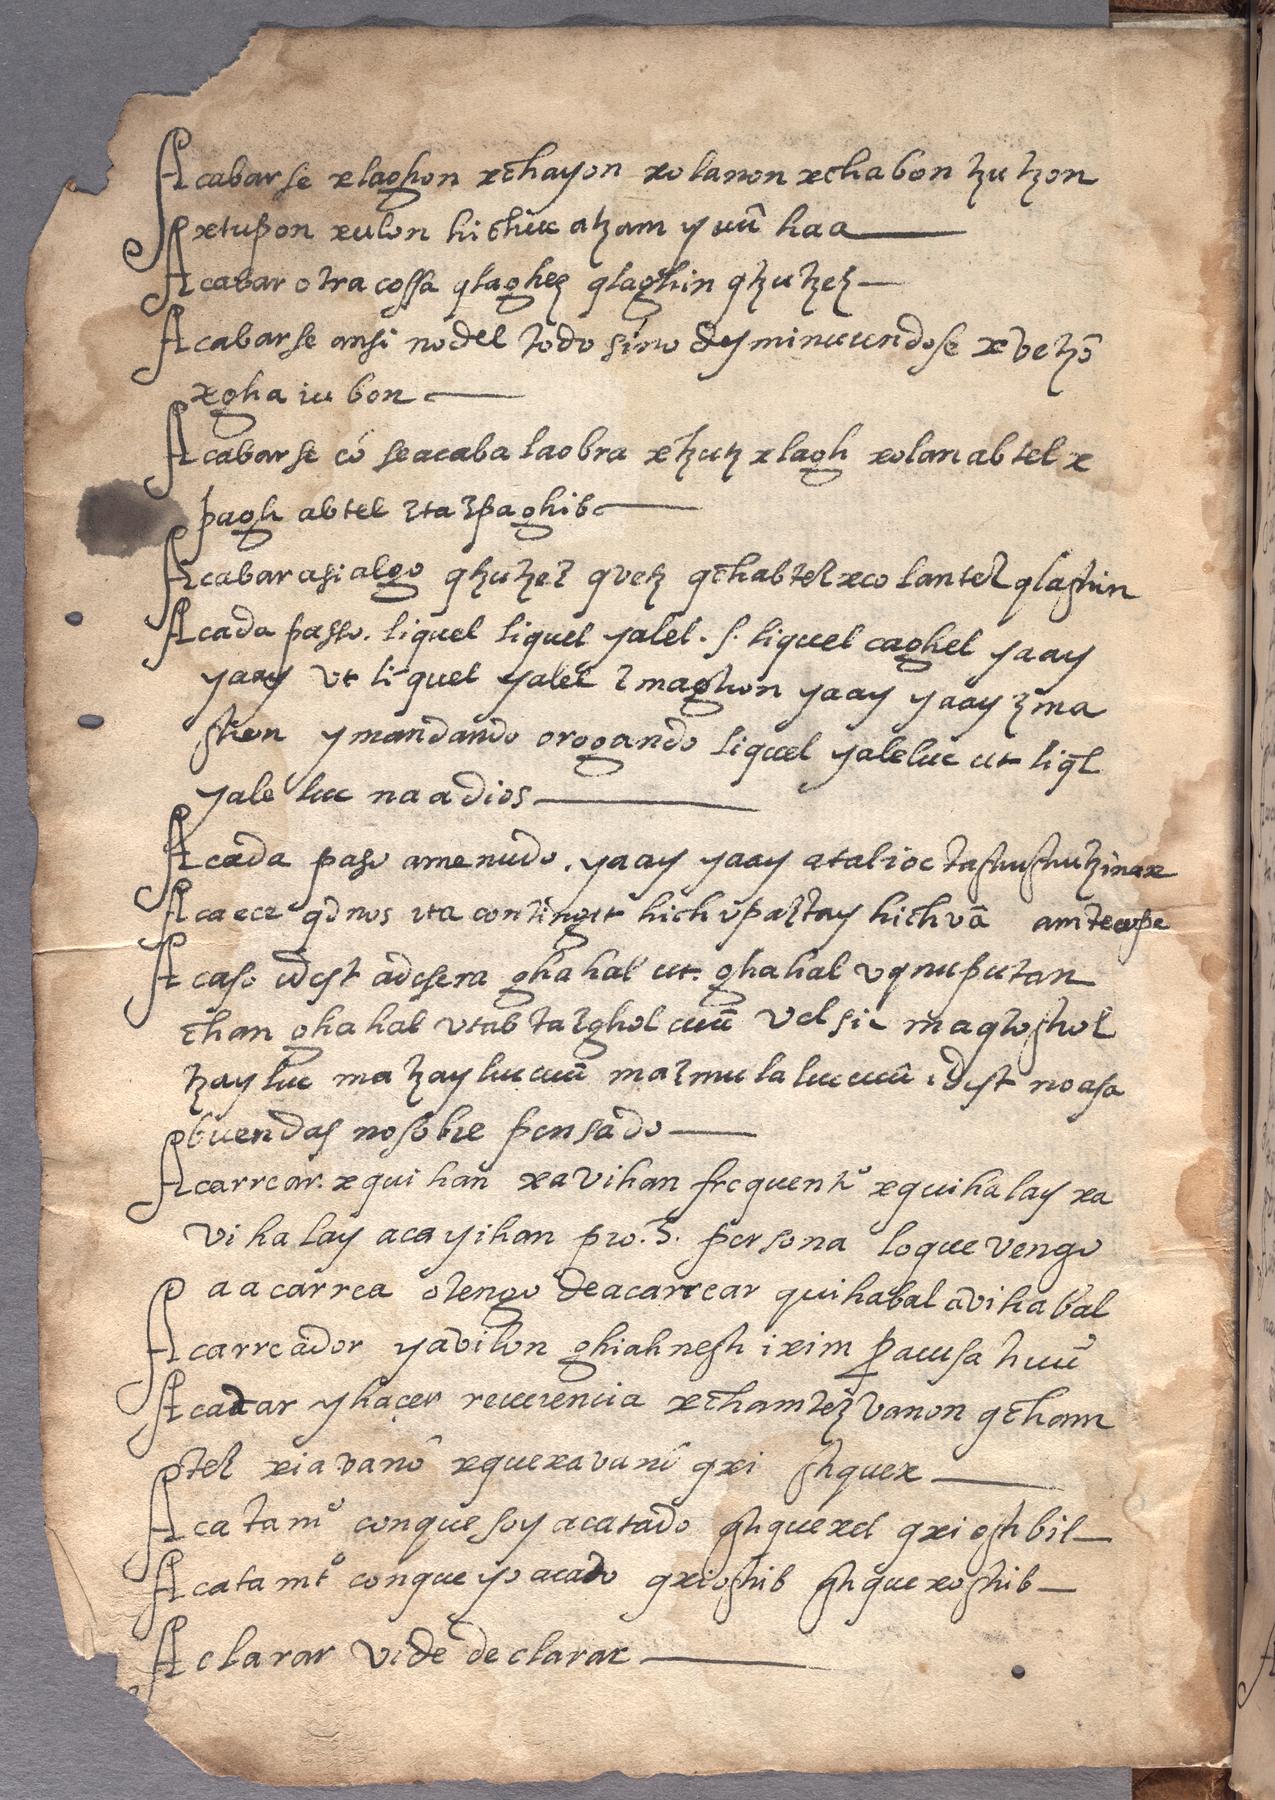 Acabarse xlaghon xchayon xolanon xchabon tzutzon
xtupon xulon hichuc atzam yuū haa
Acabar otra cossa qlaghez qlaghin qtzutzez
Acabarse ansi no del todo sino dysminuiendose x vetzō
xgha iu bon
Acabarse có seacaba laobra xtzutz xlagh xolan abtel x
pagh abtel ztazpaghib
Acabar asi algo qtzutzez qvetz qchabtez xcolantez qlaghin
Acada passo. liquel liquel yalel. s. liquel caghel yaay
yaay vt liquel yalel zmaghon yaay yaay zma
ghon y mandando orogando liquel yaleluc ut liq̄l
yale luc naadios
Acada paso amenudo. yaay yaay atalioc
Acaece qdnos ita contingit hichvpaztay hichvā
Acaso idest adesera ghahal ut. ghahal vqnuputan
chan ghahal vtab tazghol cuū vel sic maqtoghol
tzayluc matzayluc cuū mazmulaluc cuū idest noasa
buendas nosobre pensado
Acarrear. xquihan xavihan frequentᵒ xquihalay xa
vihalay acayihan pro. 3. persona loque vengo
aacarrea otengo deacarrear quihabal avihabal
Acarreador yavilon ghiahnegh ixim
Acadar yhaçer reuerencia xchamtezvanon qcham
tez xiavanō xquexavanō qxi ghquex
Acatamᵗᵒ conque soy acatado ghquexel qxioghbil
Acatamᵗᵒ conque yo acado qxioghib ghquexoghib
Aclarar vide declarar